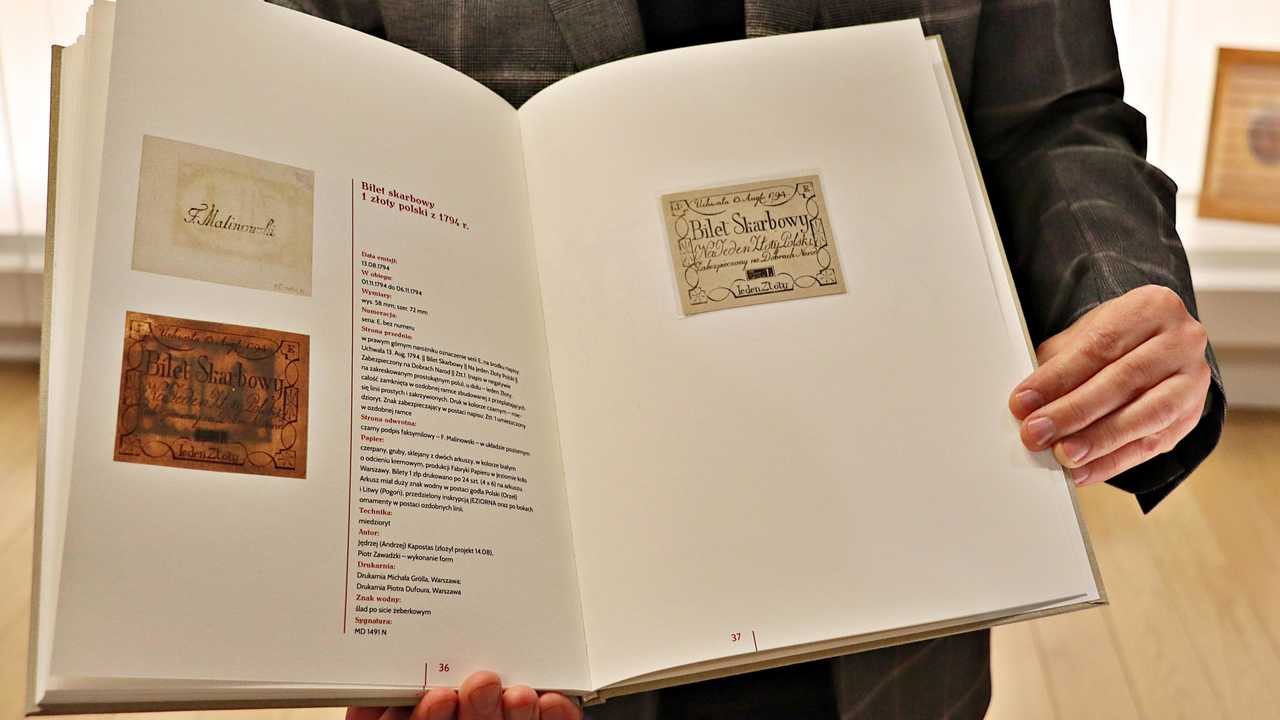 F. Malinowski
Uchwała 13. Augt. 1794.
E
Bilet Skarbowy
Na Jeden Złoty Polski
Jeden Złoty
Bilet skarbowy
1 złoty polski z 1794 r.
Data emisji:
13.08.1794
W obiegu:
01.11.1794 do 06.11.1794
Wymiary:
wys. 58 mm; szer. 72 mm
Numeracja:
seria: E, bez numeru
Strona przednia:
w prawym górnym narożniku oznaczenie serii E, na środku napisy:
Uchwała 13. Aug. 1794. || Bilet Skarbowy || Na Jeden Złoty Polski ||
Zabezpieczony na Dobrach Narod || Ztt.1. (napis w negatywie
na zakreskowanym prostokątnym polu), u dołu – Jeden Złoty,
całość zamknięta w ozdobnej ramce zbudowanej z przeplatających
się linii prostych i zakrzywionych. Druk w kolorze czarnym – mie-
dzioryt. Znak zabezpieczający w postaci napisu; Ztt: 1 umieszczony
w ozdobnej ramce
Strona odwrotna:
czarny podpis faksymilowy – F. Malinowski – w układzie poziomym
Papier:
czerpany, gruby, sklejany z dwóch arkuszy, w kolorze białym
o odcieniu kremowym, produkcji Fabryki Papieru w Jeziornie koło
Warszawy. Bilety 1 złp drukowano po 24 szt. (4 x 6) na arkuszu.
Arkusz miał duży znak wodny w postaci godła Polski (Orzeł)
i Litwy (Pogoń), przedzielony inskrypcją JEZIORNA oraz po bokach
ornamenty w postaci ozdobnych linii.
Technika:
miedzioryt
Autor:
Jędrzej (Andrzej) Kapostas (złożył projekt 14.08),
Piotr Zawadzki – wykonanie form
Drukarnia:
Drukarnia Michała Grölla, Warszawa;
Drukarnia Piotra Dufoura, Warszawa
Znak wodny:
ślad po sicie żeberkowym
Sygnatura:
MD 1491 N
36
Uchwała 13. Augt. 1794.
E
Bilet Skarbowy
Na Jeden Złoty Polski
Zabezpieczony na Dobrach Narod
Jeden Złoty
37